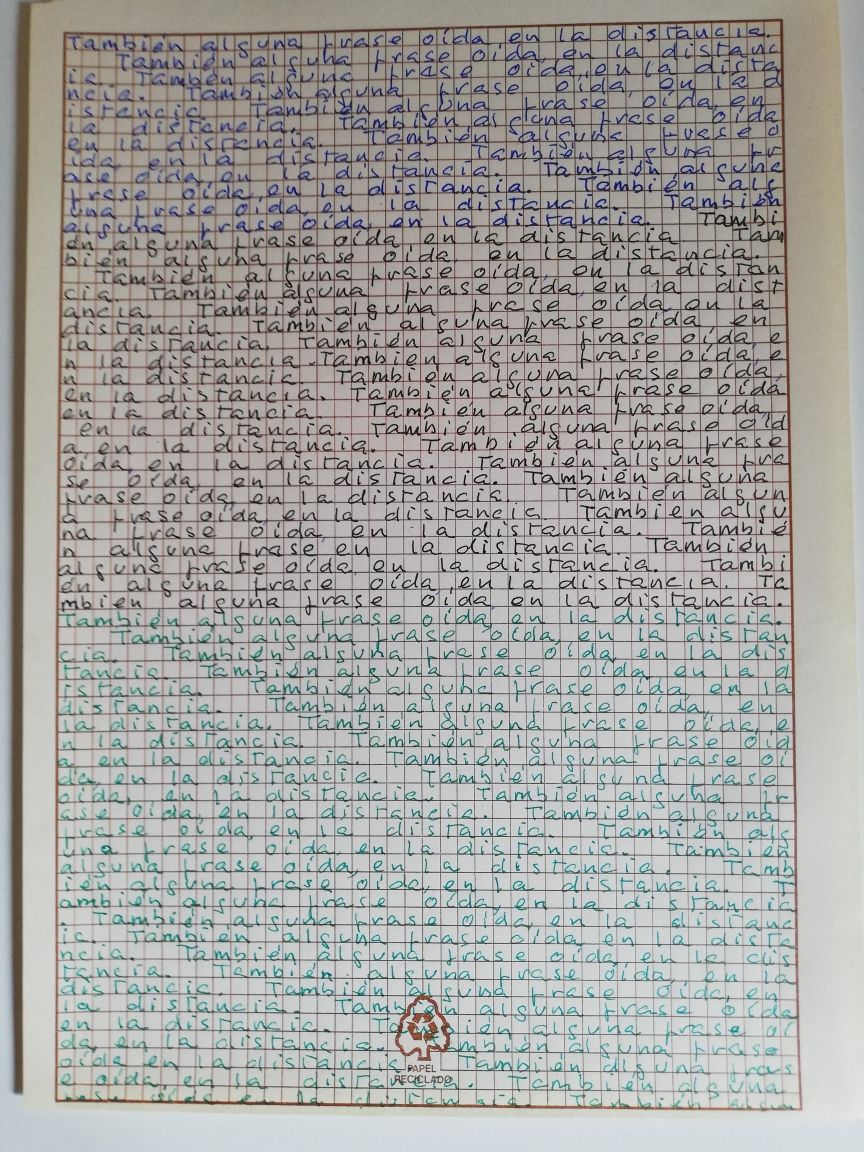 También alguna frase oída, en la distancia.
También alguna frase oída, en la distanc
ia. Tambén alguna frase oída, en la dista
ncia. También alguna frase oída, en la d
istancia. También alguna frase oída, en
la distancia. También alguna frase oída
en la distancia. También alguna frase o
ída en la distancia. También alguna fr
ase oída, en la distancia. También alguna
frase oída, en la distancia. También alg
una frase oída, en la distancia. También
alguna frase oída, en la distancia. Tambi
én alguna frase oída, en la distancia. Tam
bién alguna frase oída, en la distancia.
También alguna frase oída, en la distan
cia. También alguna frase oída, en la dist
ancia. También alguna frase oída en la
distancia. También alguna frase oída, en
la distancia. También alguna frase oída, e
n la distancia. También alguna frase oída, e
n la distancia. También alguna frase oída,
en la distancia. También alguna frase oída
en la distancia. También alguna frase oída,
en la distancia. También alguna frase oíd
a, en la distancia. También alguna frase
oída, en la distancia. También alguna fra
se oída, en la distancia. También alguna
frase oída, en la distancia. También algun
a frase oída, en la distancia. También algu
na frase oída, en la distancia. Tambié
n alguna frase en la distancia. También
alguna frase oída, en la distancia. Tambi
én alguna frase oída, en la distancia. Ta
mbién alguna frase oída, en la distancia.
También alguna frase oída, en la distancia.
También alguna frase oída, en la distan
cia. También alguna frase oída, en la dis
tancia. También alguna frase oída, en la d
istancia. También alguna frase oída, en la
distancia. También alguna frase oída, en
la distancia. También alguna frase oída, e
n la distancia. También alguna frase oíd
a en la distancia. También alguna frase oí
da, en la distancia. También alguna frase
oída, en la distancia. También alguna fr
ase oída, en la distancia. También alguna
frase oída, en la distancia. También alg
una frase oída, en la distancia. También
alguna frase oída, en la distancia. Tamb
ién alguna frase oída, en la distancia. T
ambién alguna frase oída, en la distancia
. También alguna frase oída, en la distanc
ia. También alguna frase oída, en la dista
ncia. También alguna frase oída, en la dis
tancia. También alguna frase oída, en la
distancia. También alguna frase oída, en
la distancia. También alguna frase oída
en la distancia. También alguna frase oí
da, en la distancia. También alguna frase
oída en la distancia. También alguna fras
e oída, en la distancia. También alguna
frase oída en la distancia. También alguna
PAPEL
RECICLADO